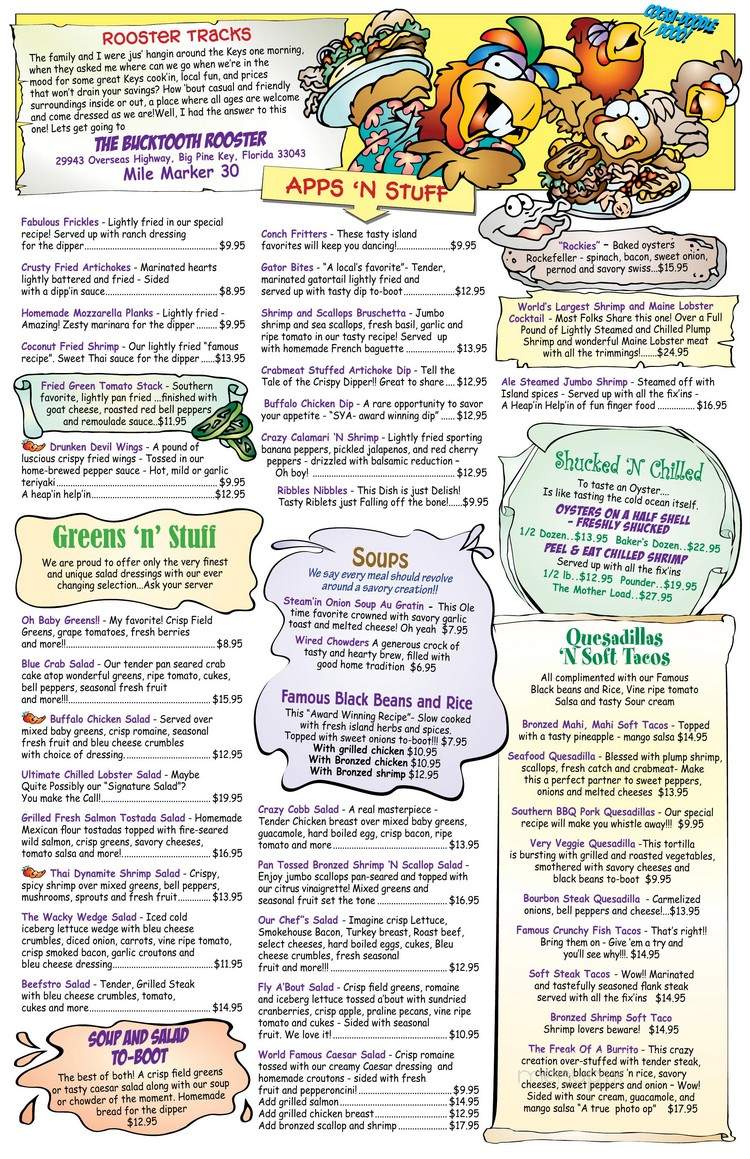 ROOSTER TRACKS
The family and I were jus' hangin around the Keys one morning,
when they asked me where can we go when we're in the
mood for some great Keys cook'in, local fun, and prices
that won't drain your savings? How 'bout casual and friendly
surroundings inside or out, a place where all ages are welcome
and come dressed as we are!Well, I had the answer to this
one! Lets get going to
THE BUCKTOOTH ROOSTER
29943 Overseas Highway, Big Pine Key, Florida 33043
Mile Marker 30
COCKA-DOODLE
DOOO!
APPS 'N STUFF
Fabulous Frickles - Lightly fried in our special
recipe! Served up with ranch dressing
for the dipper.... $9.95
Crusty Fried Artichokes - Marinated hearts
lightly battered and fried - Sided
with a dipp'in sauce.... $8.95
Homemade Mozzarella Planks - Lightly fried -
Amazing! Zesty marinara for the dipper .... $9.95
Coconut Fried Shrimp - Our lightly fried "famous
recipe". Sweet Thai sauce for the dipper ....$13.95
Fried Green Tomato Stack - Southern
favorite, lightly pan fried ...finished with
goat cheese, roasted red bell peppers
and remoulade sauce..$11.95
Drunken Devil Wings - A pound of
luscious crispy fried wings - Tossed in our
home-brewed pepper sauce - Hot, mild or garlic
teriyaki.... $9.95
A heap'in help'in....$12.95
Conch Fritters - These tasty island
favorites will keep you dancing!....$9.95
Gator Bites - "A local's favorite"- Tender,
marinated gatortail lightly fried and
served up with tasty dip to-boot....$12.95
Shrimp and Scallops Bruschetta - Jumbo
shrimp and sea scallops, fresh basil, garlic and
ripe tomato in our tasty recipe! Served up
with homemade French baguette .... $13.95
Crabmeat Stuffed Artichoke Dip - Tell the
Tale of the Crispy Dipper!! Great to share.... $12.95
Buffalo Chicken Dip - A rare opportunity to savor
your appetite - "SYA- award winning dip" ..... $12.95
Crazy Calamari 'N Shrimp - Lightly fried sporting
banana peppers, pickled jalapenos, and red cherry
peppers - drizzled with balsamic reduction -
Oh boy! .... $12.95
Ribbles Nibbles - This Dish is just Delish!
Tasty Riblets just Falling off the bone!.....$9.95
"Rockies" - Baked oysters
Rockefeller - spinach, bacon, sweet onion,
pernod and savory swiss...$15.95
World's Largest Shrimp and Maine Lobster
Cocktail - Most Folks Share this one! Over a Full
Pound of Lightly Steamed and Chilled Plump
Shrimp and wonderful Maine Lobster meat
with all the trimmings!.......$24.95
Ale Steamed Jumbo Shrimp - Steamed off with
Island spices - Served up with all the fix'ins -
A Heap'in Help'in of fun finger food .... $16.95
Shucked 'N Chilled
To taste an Oyster....
Is like tasting the cold ocean itself.
OYSTERS ON A HALF SHELL
- FRESHLY SHUCKED
1/2 Dozen..$13.95 Baker's Dozen..$22.95
PEEL & EAT CHILLED SHRIMP
Served up with all the fix'ins
1/2 lb..$12.95 Pounder..$19.95
The Mother Load..$27.95
Greens 'n' Stuff
We are proud to offer only the very finest
and unique salad dressings with our ever
changing selection...Ask your server
Oh Baby Greens!! - My favorite! Crisp Field
Greens, grape tomatoes, fresh berries
and more!!.... $8.95
Blue Crab Salad - Our tender pan seared crab
cake atop wonderful greens, ripe tomato, cukes,
bell peppers, seasonal fresh fruit
and more!!!.... $15.95
Buffalo Chicken Salad - Served over
mixed baby greens, crisp romaine, seasonal
fresh fruit and bleu cheese crumbles
with choice of dressing.... $12.95
Ultimate Chilled Lobster Salad - Maybe
Quite Possibly our "Signature Salad"?
You make the Call!.... $19.95
Grilled Fresh Salmon Tostada Salad - Homemade
Mexican flour tostadas topped with fire-seared
wild salmon, crisp greens, savory cheeses,
tomato salsa and more!.... $16.95
Thai Dynamite Shrimp Salad - Crispy,
spicy shrimp over mixed greens, bell peppers,
mushrooms, sprouts and fresh fruit.... $13.95
The Wacky Wedge Salad - Iced cold
iceberg lettuce wedge with bleu cheese
crumbles, diced onion, carrots, vine ripe tomato,
crisp smoked bacon, garlic croutons and
bleu cheese dressing.... $11.95
Beefstro Salad - Tender, Grilled Steak
with bleu cheese crumbles, tomato,
cukes and more.... $14.95
SOUP AND SALAD
TO-BOOT
The best of both! A crisp field greens
or tasty caesar salad along with our soup
or chowder of the moment. Homemade
bread for the dipper
$12.95
SOUPS
We say every meal should revolve
around a savory creation!!
Steam'in Onion Soup Au Gratin - This Ole
time favorite crowned with savory garlic
toast and melted cheese! Oh yeah $7.95
Wired Chowders A generous crock of
tasty and hearty brew, filled with
good home tradition $6.95
Famous Black Beans and Rice
This "Award Winning Recipe"- Slow cooked
with fresh island herbs and spices.
Topped with sweet onions to-boot!!! $7.95
With grilled chicken $10.95
With Bronzed chicken $10.95
With Bronzed shrimp $12.95
Crazy Cobb Salad - A real masterpiece -
Tender Chicken breast over mixed baby greens,
guacamole, hard boiled egg, crisp bacon, ripe
tomato and more.... $13.95
Pan Tossed Bronzed Shrimp 'N Scallop Salad -
Enjoy jumbo scallops pan-seared and topped with
our citrus vinaigrette! Mixed greens and
seasonal fruit set the tone .... $16.95
Our Chef"s Salad - Imagine crisp Lettuce,
Smokehouse Bacon, Turkey breast, Roast beef,
select cheeses, hard boiled eggs, cukes, Bleu
cheese crumbles, fresh seasonal
fruit and more!!!.... $12.95
Fly A'Bout Salad - Crisp field greens, romaine
and iceberg lettuce tossed a'bout with sundried
cranberries, crisp apple, praline pecans, vine ripe
tomato and cukes - Sided with seasonal
fruit. We love it!.... $10.95
World Famous Caesar Salad - Crisp romaine
tossed with our creamy Caesar dressing and
homemade croutons - sided with fresh
fruit and pepperoncini!.... $9.95
Add grilled salmon.... $14.95
Add grilled chicken breast.... $12.95
Add bronzed scallop and shrimp.... $17.95
Quesadillas
'N Soft Tacos
All complimented with our Famous
Black beans and Rice, Vine ripe tomato
Salsa and tasty Sour cream
Bronzed Mahi, Mahi Soft Tacos - Topped
with a tasty pineapple - mango salsa $14.95
Seafood Quesadilla - Blessed with plump shrimp,
scallops, fresh catch and crabmeat- Make
this a perfect partner to sweet peppers,
onions and melted cheeses $13.95
Southern BBQ Pork Quesadillas - Our special
recipe will make you whistle away!!! $9.95
Very Veggie Quesadilla -This tortilla
is bursting with grilled and roasted vegetables,
smothered with savory cheeses and
black beans to-boot $9.95
Bourbon Steak Quesadilla - Carmelized
onions, bell peppers and cheese!...$13.95
Famous Crunchy Fish Tacos - That's right!!
Bring them on - Give 'em a try and
you'll see why!!!. $14.95
Soft Steak Tacos - Wow!! Marinated
and tastefully seasoned flank steak
served with all the fix'ins $14.95
Bronzed Shrimp Soft Taco
Shrimp lovers beware! $14.95
The Freak Of A Burrito - This crazy
creation over-stuffed with tender steak,
chicken, black beans 'n rice, savory
cheeses, sweet peppers and onion - Wow!
Sided with sour cream, guacamole, and
mango salsa "A true photo op" $17.95